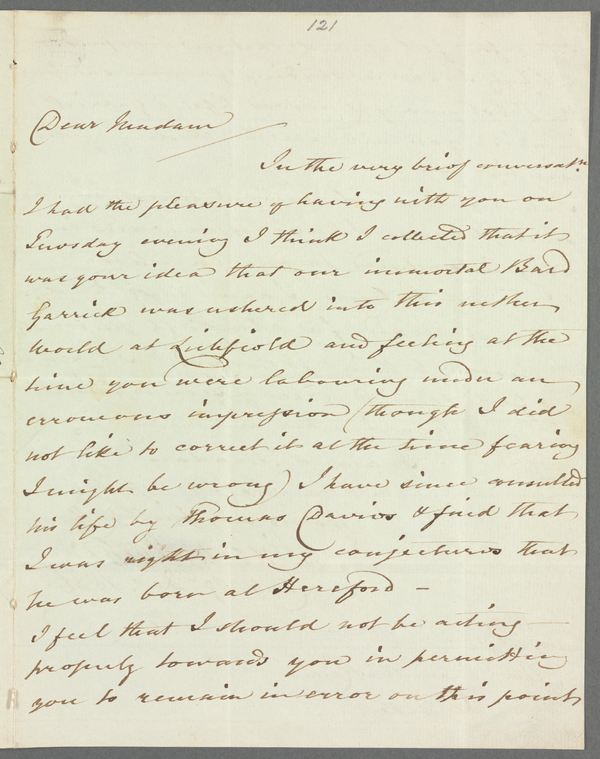 121
Dear Madam
In the very brief conversatn.
I had the pleasure of having with you on
Tuesday evening I think I collected that it
was your idea that our immortal Bard
Garrick was ushered into this nether
world at Lichfield and feeling at the
time you were labouring under an
erroneous impression (though I did
not like to correct it at the time fearing
I might be wrong) I have since consulted
his life by Thomas Davies & find that
I was right in my conjectures that
he was born at Hereford —
I feel that I should not be acting
properly towards you in permitting
you to remain in error on this point